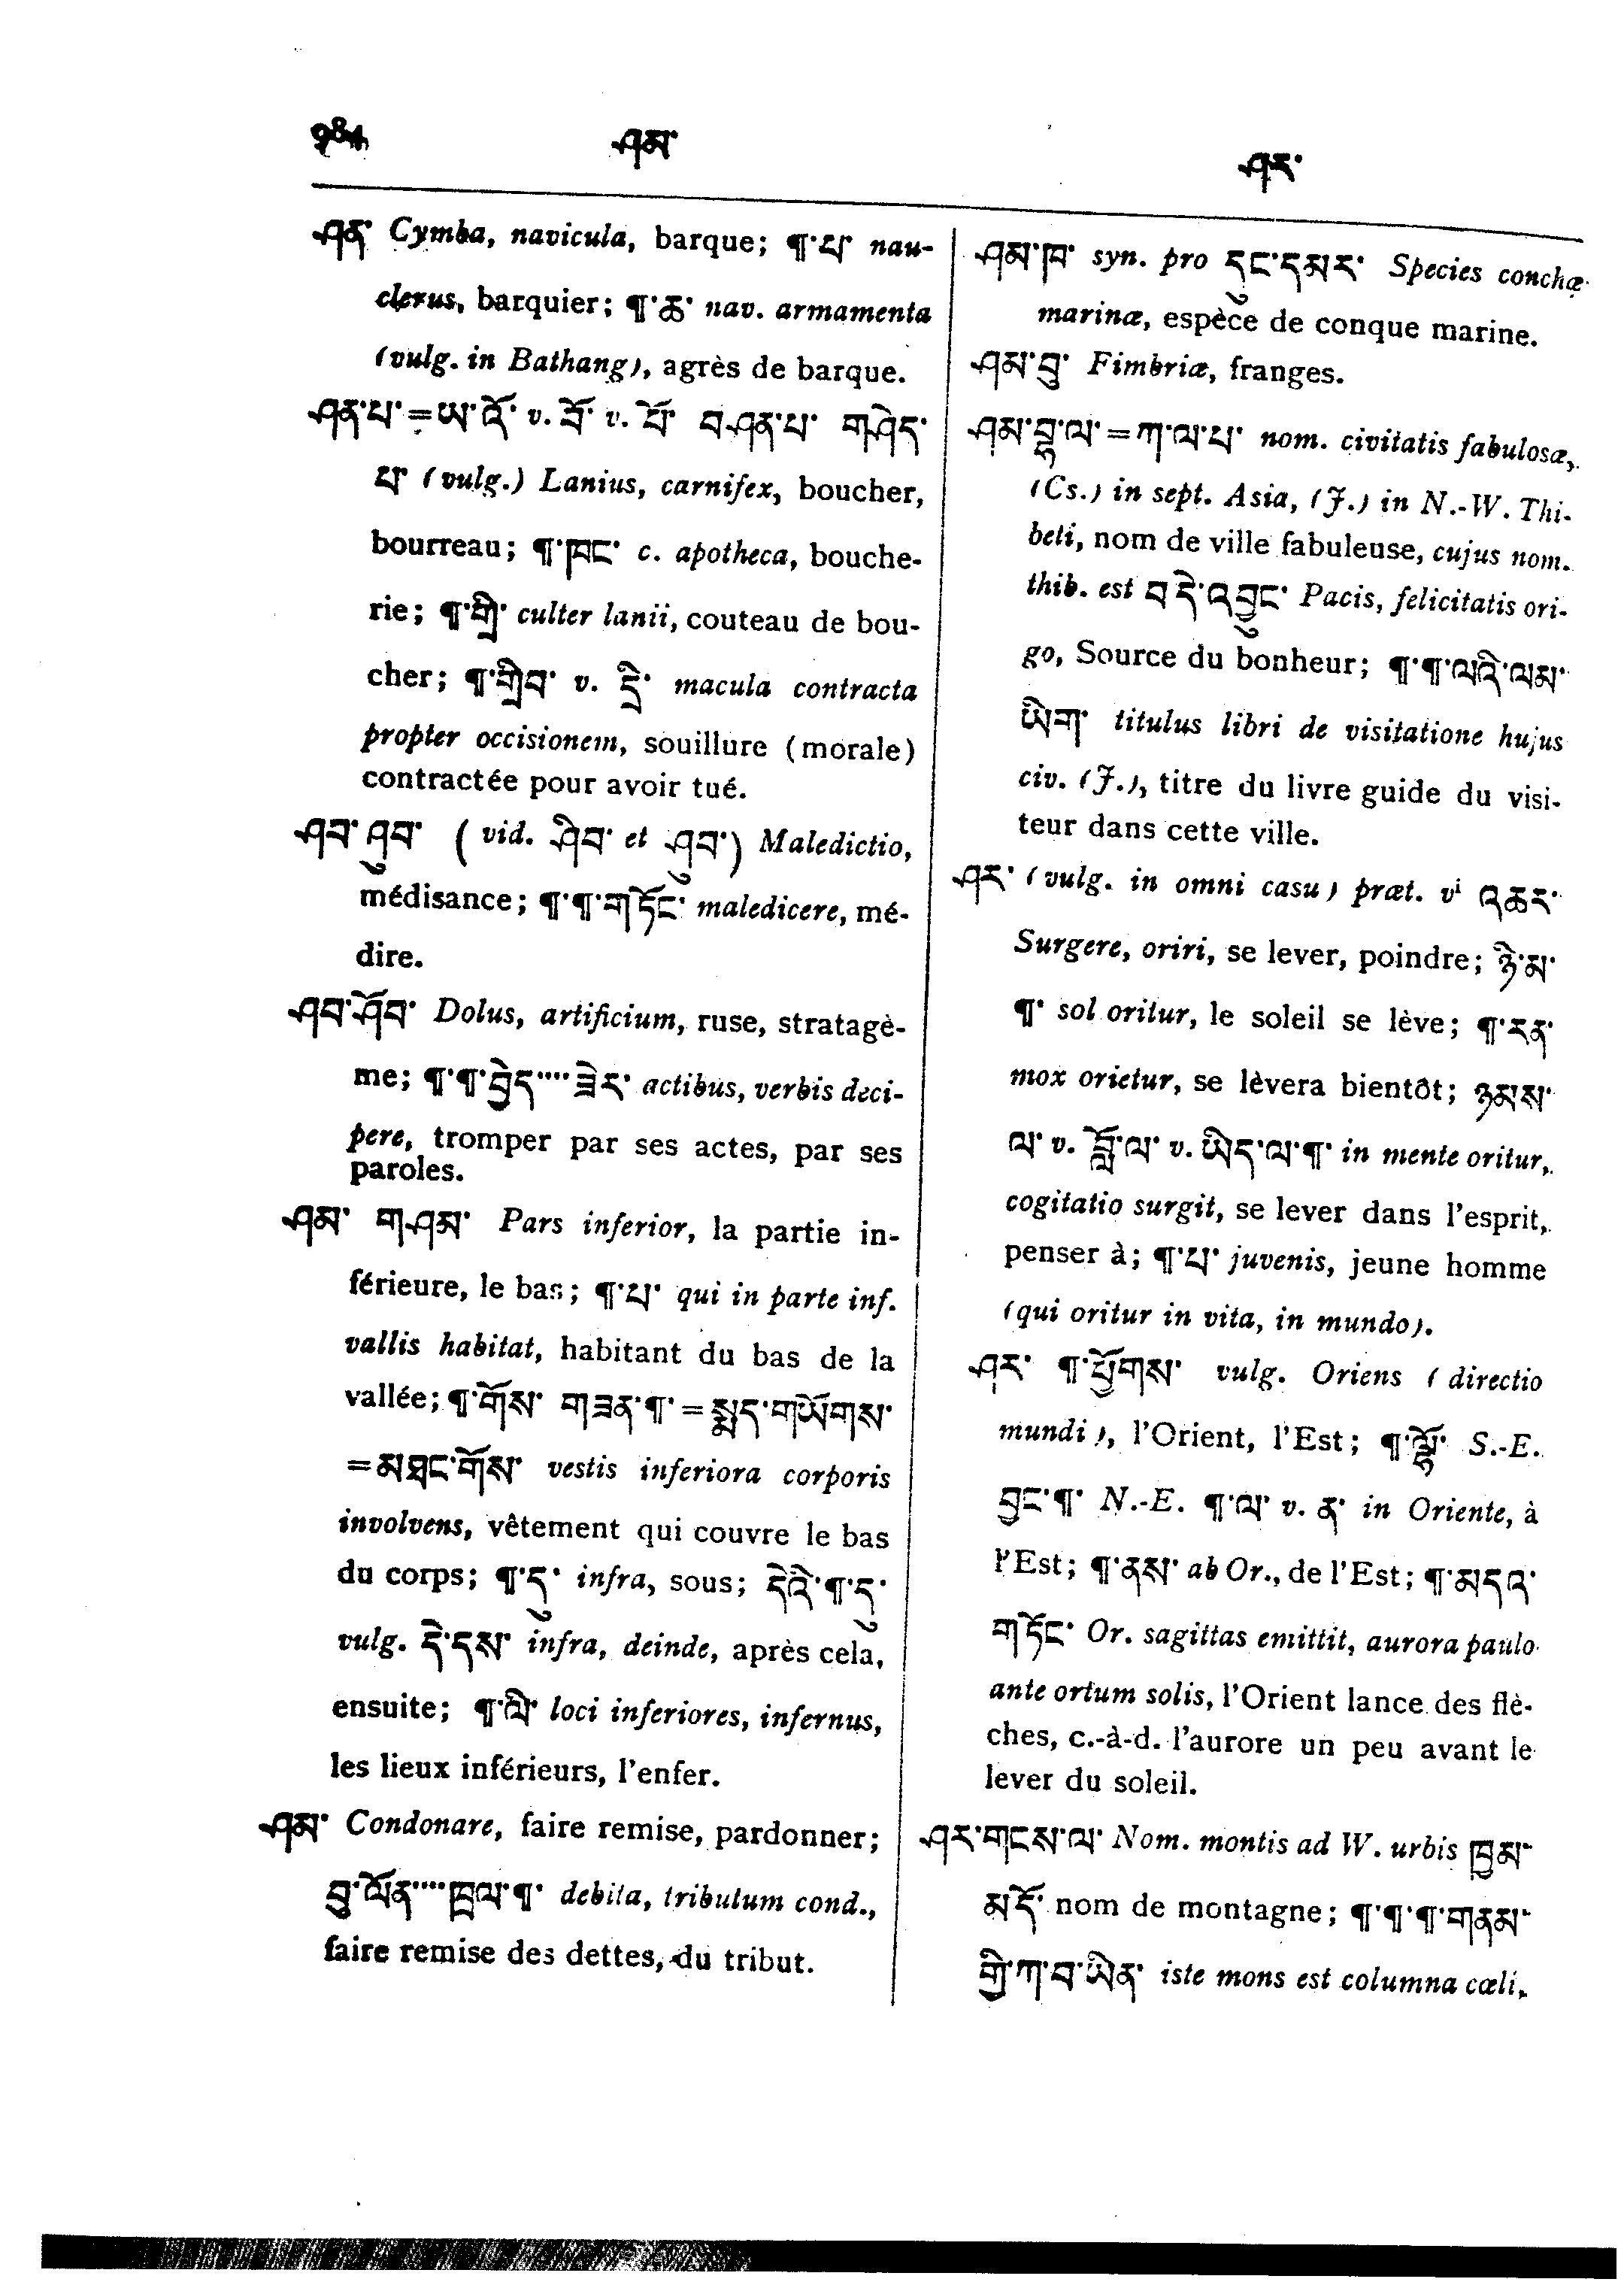 984 ཤམ་ ཤར་
ཤན་ Cymba, navicula, barque; ¶་པ་ nau-
clerus, barquier; ¶་ཆ་ nav. armamenta
(vulg. in Bathang), agrès de barque.
ཤན་པ་=ཡ་འོ་ v. བོ་ v. པོ་ བཤན་པ་ གཤེད་
པ་ (vulg.) Lanius, carnifex, boucher,
bourreau; ¶་ཁང་ c. apotheca, bouche-
rie; ¶་གྲི་ culter lanii, couteau de bou-
cher; ¶་གྲིབ་ v. དྲི་ macula contracta
propter occisionem, souillure (morale)
contractée pour avoir tué.
ཤབ་ཤུབ་ (vid. ཤིབ་ et ཤུབ་) Maledictio,
médisance; ¶་¶་གཏོང་ maledicere, mé-
dire.
ཤབ་ཤོབ་ Dolus, artificium, ruse, stratagè-
me; ¶་¶་བྱེད་····ཟེར་ actibus, verbis deci-
pere, tromper par ses actes, par ses
paroles.
ཤམ་ གཤམ་ Pars inferior, la partie in-
férieure, le bas; ¶་པ་ qui in parte inf.
vallis habitat, habitant du bas de la
vallée; ¶་གོས་ གཟན་¶་=སྨད་གཡོགས་
=མཐང་གོས་ vestis inferiora corporis
involvens, vêtement qui couvre le bas
du corps; ¶་དུ་ infra, sous; དེའི་¶་དུ་
vulg. དེ་དས་ infra, deinde, après cela,
ensuite; ¶་ལི་ loci inferiores, infernus,
les lieux inférieurs, l'enfer.
ཤམ་ Condonare, faire remise, pardonner;
བུ་ལོན་····ཁྲལ་¶་ debita, tributum cond.,
faire remise des dettes, du tribut.
ཤམ་ཁ་ syn. pro དུང་དམར་ Species conchæ
marinæ, espèce de conque marine.
ཤམ་བུ་ Fimbriæ, franges.
ཤམ་བྷ་ལ་=ཀ་ལ་པ་ nom. civitatis fabulosæ,
(Cs.) in sept. Asia, (J.) in N.-W. Thi-
beti, nom de ville fabuleuse, cujus nom.
thib. est བདེ་འབྱུང་ Pacis, felicitatis ori-
go, Source du bonheur; ¶་¶་ལའི་ལམ་
ཡིག་ titulus libri de visitatione hujus
civ. (J.), titre du livre guide du visi-
teur dans cette ville.
ཤར་ (vulg. in omni casu) præt. vi འཆར་
Surgere, oriri, se lever, poindre; ཉི་མ་
¶་ sol oritur, le soleil se lève; ¶་རན་
mox orietur, se lèvera bientôt; ཉམས་
ལ་ v. བློ་ལ་ v. ཡིད་ལ་¶་ in mente oritur,
cogitatio surgit, se lever dans l'esprit,
penser à; ¶་པ་ juvenis, jeune homme
(qui oritur in vita, in mundo).
ཤར་ ¶་ཕྱོགས་ vulg. Oriens (directio
mundi), l'Orient, l'Est; ¶་ལྷོ་ S.-E.
བྱང་¶་ N.-E. ¶་ལ་ v. ན་ in Oriente, à
l'Est; ¶་ནས་ ab Or., de l'Est; ¶་མདའ་
གཏོང་ Or. sagittas emittit, aurora paulo
ante ortum solis, l'Orient lance des flè-
ches, c.-à-d. l'aurore un peu avant le
lever du soleil.
ཤར་གངས་ལ་ Nom. montis ad W. urbis ཁྱམ་
མདོ་ nom de montagne; ¶་¶་¶་གནམ་
གྱི་ཀ་བ་ཡིན་ iste mons est columna cœli,